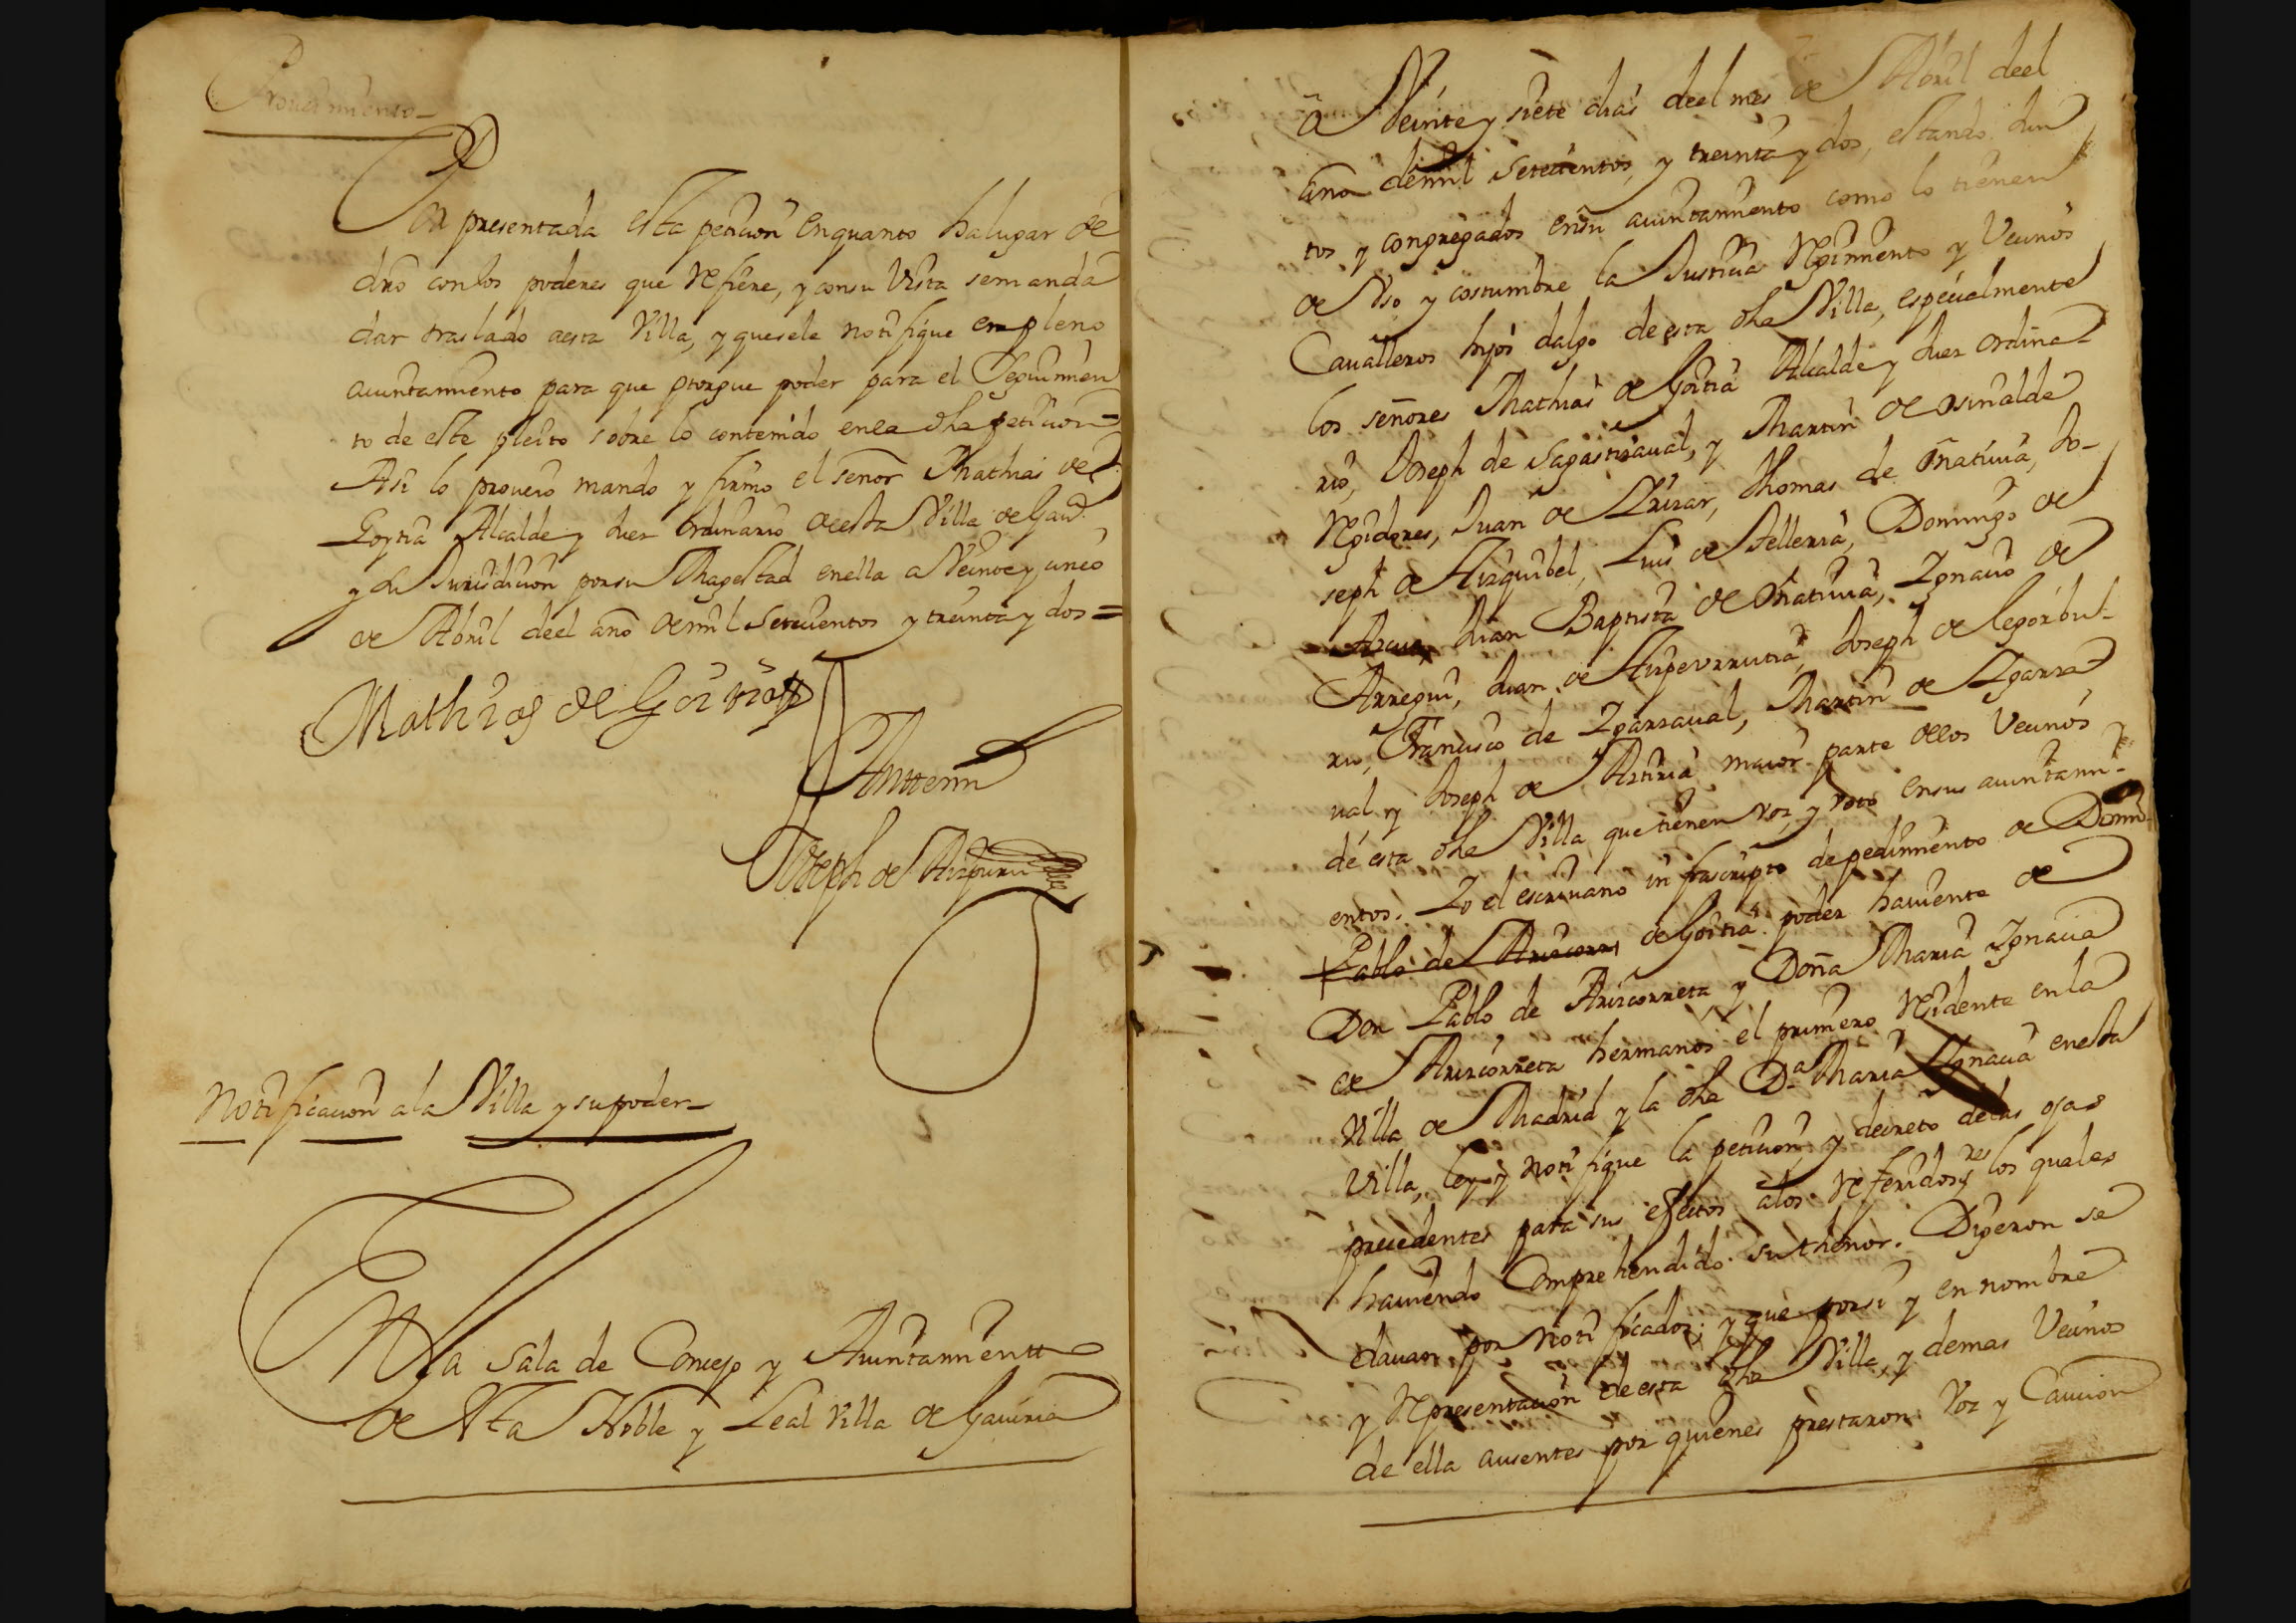 Proueimiento
Por presentada esta peticion enquanto halugar de
dro conlos poderes que Refiere, y consu Vista semanda
dar traslado aesta Villa, y quesele notifique enpleno
aiuntamiento para que otorgue poder para el Seguimien
to de este pleito sobre lo contenido enla dha peticion=
Asi lo proueio mando y firmo el señor Mathias de
Goytia Alcalde y Juez ordinario deesta Villa de Gauir.ª
y su Jurisdicion porsu Magestad enella a Veinte y cinco
de Abril deel año demil Setecientos y treinta y dos=
Mathias de Goitia
Antte mi
Joseph de Aizpuru
Notificacion ala Villa y supoder
En la sala de Concejo y Aiuntamientto
de Esta Noble y Leal Villa de Gauiria
a Veinte y siete dias deel mes de Abril deel
año demil Setecientos, y treinta y dos, estando Jun
tos y congregados ensu aiuntamiento como lo tienen
de Vso y costumbre la Justicia Regimiento y Vecinos
Caualleros hijos dalgo deesta dha Villa, especialmente
los señores Mathias de Goitia Alcalde y Juez ordina
rio, Joseph de Sagastizaual, y Martin de osinalde
Regidores, Juan de Irizar, Thomas de oñatiuia, Jo-
seph de Aizquibel, Luis de Telleria, Domingo de
Azcue, Juan Baptista de oñatiuia, Ygnacio de
Arregui, Juan de Aizpeurrutia, Joseph de legorbu-
ru, Francisco de Ygarzaual, Martin de Ygarza
ual y Joseph de Aztiria maior parte delos Vecinos
de esta dha Villa quetienen voz, y voto ensus aiuntami-
entos. Yo el escriuano infrascripto depedimiento de Domin
Pablo de Arizcorre de Goitia poder hauiente de
Don Pablo de Arizcorreta, y Doña Maria Ygnacia
de Arizcorreta hermanos el primero Residente enla
Villa de Madrid y la dha D.ª Maria Ygnacia enesta
Villa, ley y notifique la peticion, y decreto delas ojas
precedentes para sus efectos alos Referidos ss.res los quales
hauiendo Comprehendido su thenor. Digeron se
dauan por notificados; y que porsi y en nombre
y Representacion deesta dha Villa, y demas Vecinos
de ella ausentes por quienes prestaron Voz y Caucion